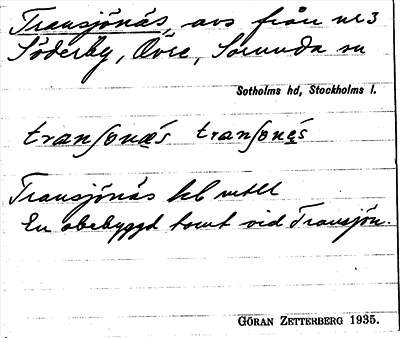 Transjönäs, avs från nr 3
Söderby, Övre, Sorunda sn
Sotholms hd, Stockholms l.
Transjönäs
En obebyggd tomt vid Transjön.
GÖRAN ZETTERBERG 1935.